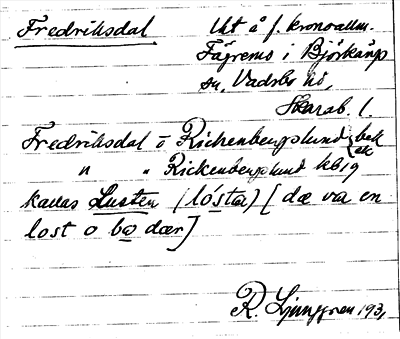 Fredriksdal Uht å f. kronoallm.
Fägremo i Björkäng
sn, Vadsbo hd,
Skarab. l.
Fredriksdal o Richenbergslund bek
" " Rickenbergslund kblg
kallas Lusten (lósta) [dæ va en
lost o bo dær]
R. Ljunggren 193,